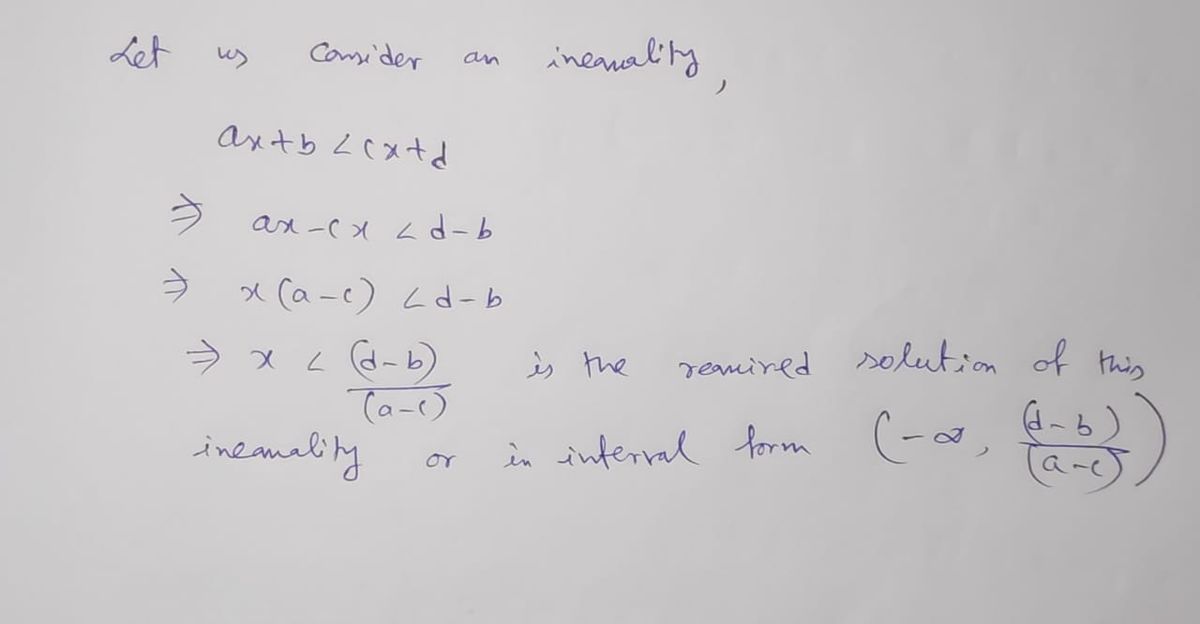 Let us consider an inequality,
ax+b < cx+d
⇒ ax-cx < d-b
⇒ x(a-c) < d-b
⇒ x < (d-b)/(a-c) is the required solution of this
inequality or in interval form (-∞, (d-b)/(a-c))